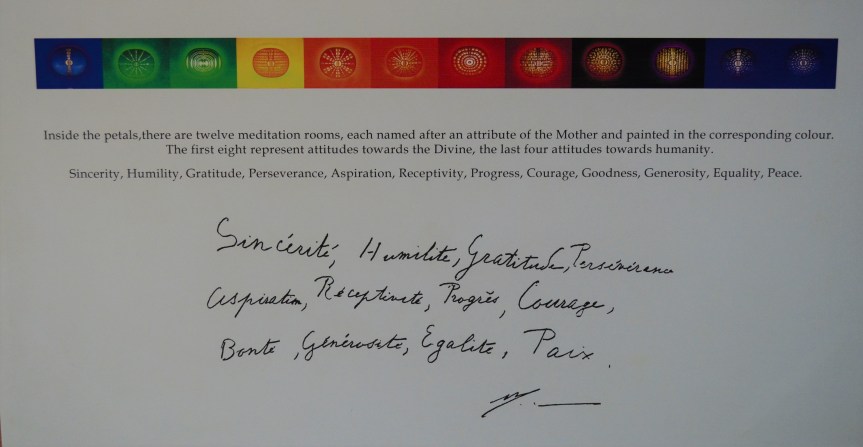 Inside the petals,there are twelve meditation rooms, each named after an attribute of the Mother and painted in the corresponding colour.
The first eight represent attitudes towards the Divine, the last four attitudes towards humanity.
Sincerity, Humility, Gratitude, Perseverance, Aspiration, Receptivity, Progress, Courage, Goodness, Generosity, Equality, Peace.
Sincérité, Humilité, Gratitude, Persévérance
aspiration, Réceptivité, Progrès, Courage,
Bonté, Générosité, Egalité, Paix.